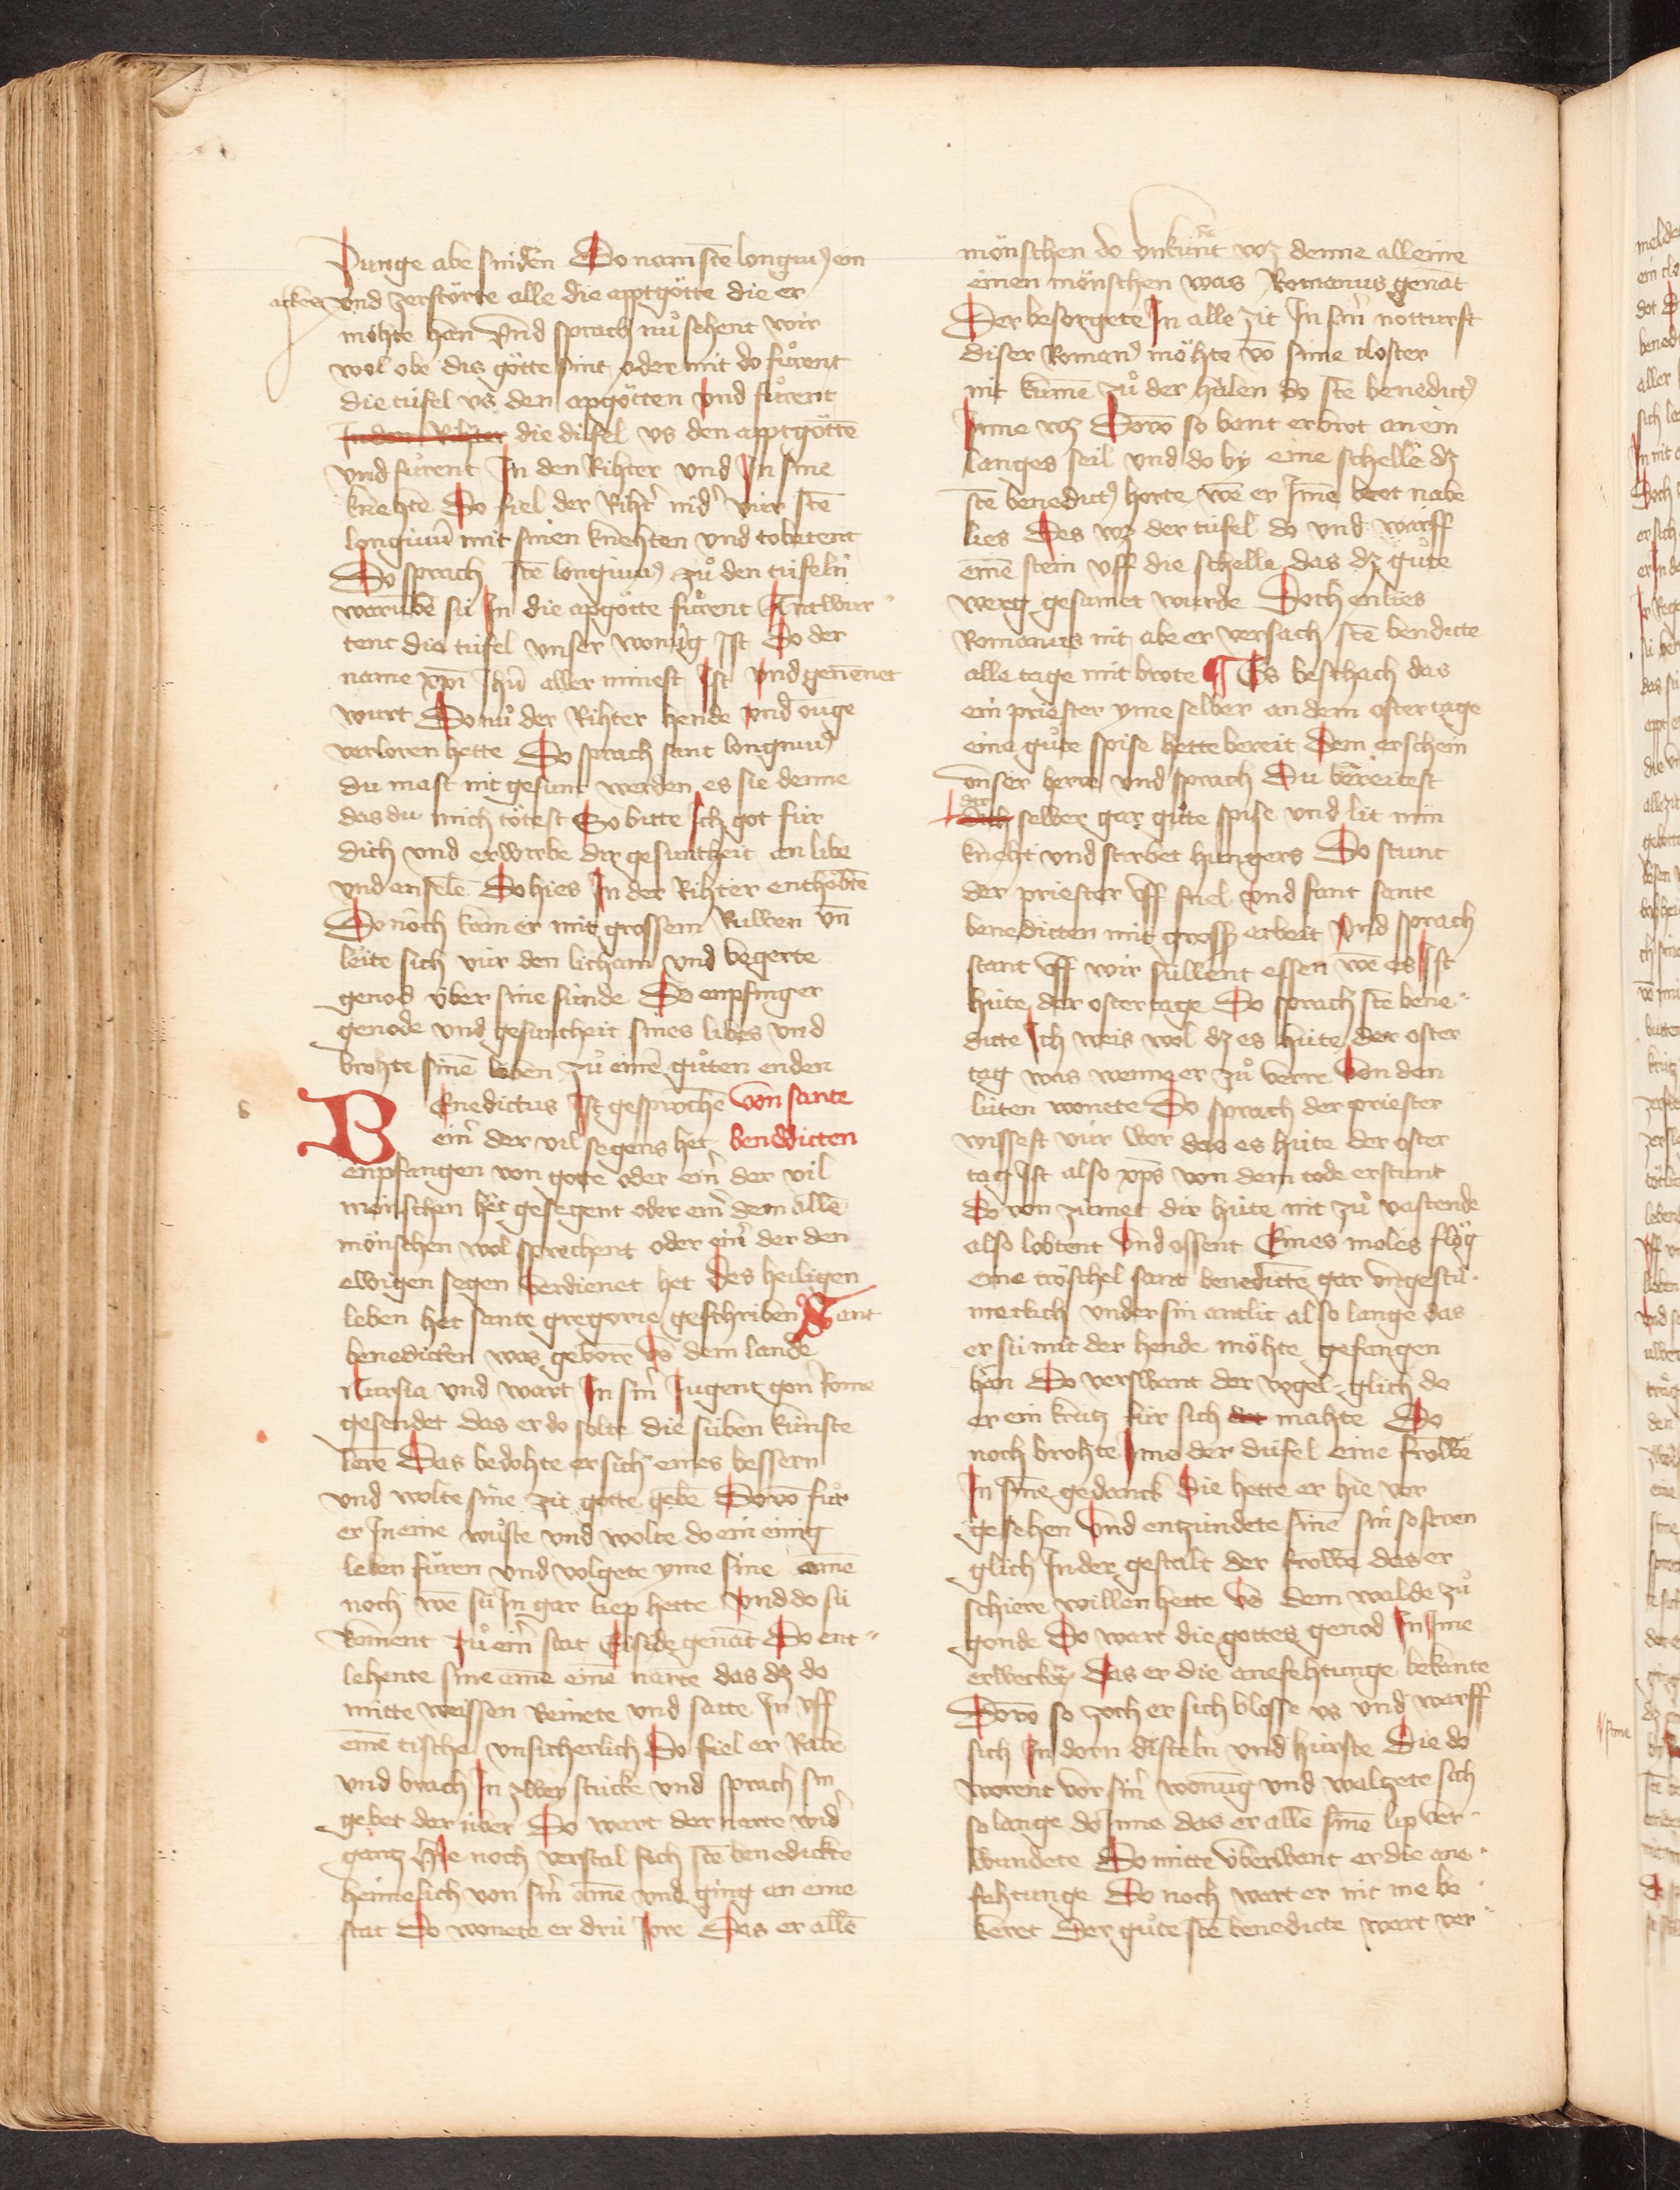 Zunge abe sniden Do nam ste longinus ein
ackes und zerstörte alle die apptgötte die er
möhte han Und sprach nuͦ sehent wir
wol obe dis götte sint oder nit do fuͦrent
die tüfel us den apgötten und fuͦrent
In den Rihter die düfel us den apptgöttē
und fuͦrent In den Rihter und In sine
knehte Do fiel der Rihter nider vür stē
longinū mit sinen knehten und tobetent
Do sprach stē longinus zuͦ den tüfeln
warūbe sü In die apgötte fuͦrent Antwur
tent die tüfel unser wonūg Ist Do der
name xp̄i Ihū aller minest Ist und genēnet
wurt Do nuͦ der Rihter hende und ouge
verloren hette Do sprach sant longinus
du maht nit gesunt werden es sie denne
das du mich tötest So bitte Ich got für
dich und erwirbe dir gesuntheit an libe
und an selē Do hies In der Rihter enthöbtē
Donoch kam er mit grossem Ruwen un̄
leite sich vür den licham und begerte
genod über sine sünde Do enpfing er
genode und gesuntheit sines libes und
brohte sinē leben zuͦ eime guͦten enden
Benedictus Ist gesprochē von sante
einr der vil segens het bendicten
enpfangen von gotte oder einr der vil
mönschen het gesegent oder einr dem allē
mönschen wol sprechent oder einr der den
ewigen segen verdienet het Des heiligen
leben het sante gregorie geschriben Sant
benedicten was geborē us dem lande
Nursia und wart In sinr Jugent gon Rome
gesendet das er do solte die süben künste
lerē Das bedohte er sich eines bessern
und wolte sine zit gotte gebē Dovō fuͦr
er In eine wuͦste und wolte do ein einig
leben fuͦren und volgete yme sine amē
noch wē sü In gar liep hette Und do sü
koment zuͦ einr stat Eiside genāt Do ent
lehente sine ame eine narte das dz do
mitte weissen Reinete und satte In uff
einē tische unsicherlich Do fiel er Rabe
und brach In zwey stücke und sprach sin
gebet der über Do wart der narte wider
gantz Hie noch verstal sich stē benedicte
heimelich von sinr amē und ging an eine
stat Do wonete er drü Jore Das er allē
mönschen do unkunt wz denne alleine
einen mönschen was Romanus genāt
Der besorgete In alle zit In sinr notturft
diser Romanus möhte vō sime closter
nit kumē zuͦ der hülen do stē benedictus
Inne wz Dovō so bant er brot an ein
langes seil und do by eine schelle dz
stē benedictus horte wē er Ime brot nabe
lies Des wz der tüfel do und warff
einē stein uff die schelle das dz guͦte
werg gesumet wurde Doch enlies
Romanus nit abe er versach stē bendicte
alle tage mit brote ¶ Es beschach das
ein priester yme selber an dem ostertage
eine guͦte spise hette bereit Dem erschein
unser herre und sprach Du bereitest
dir selber gar guͦte spise und lit min
kneht und stirbet hungers Do stunt
der priester uff snel und fant sante
benedicten mit grosser erbeit Und sprach
stant uff wir süllent essen wē es Ist
hüte der ostertage Do sprach stē bene
dicte Ich weis wol dz es hüte der oster
tag was wenne er zuͦ verre von den
lüten wonete Do sprach der priester
wissest vür wor das es hüte der oster
tag Ist also xp̄s von dem tode erstunt
Do von zimet dir hüte nit zuͦ vastende
also lobtent Und ossent Eines moles flög
eine tröschel sant benedicte gar ungestü
meclich under sin antlit also lange das
er sü mit der hende möhte gefangen
han Do verswant der vogel glich do
er ein krütz für sich mahte Do
noch brohte Ime der düfel eine frowe
In sine gedanck Die hette er hie vor
gesehen Und entzündete sinē sin so stren
glich In der gestalt der frowē das er
schiere willen hette Us dem walde zuͦ
gonde Do wart die gottes genod In Ime
erwecket Das er die anefehtunge bekante
Dovō so zoch er sich blosse us und warff
sich In dorn disteln und hürste Die do
worent vor sinr wonūg und walzete sich
so lange do Inne das er allē sinē lip ver
wundete Do mitte überwant er die ane
fehtunge Do noch wart er nit me be
keret Der guͦte stē benedicte wart ver